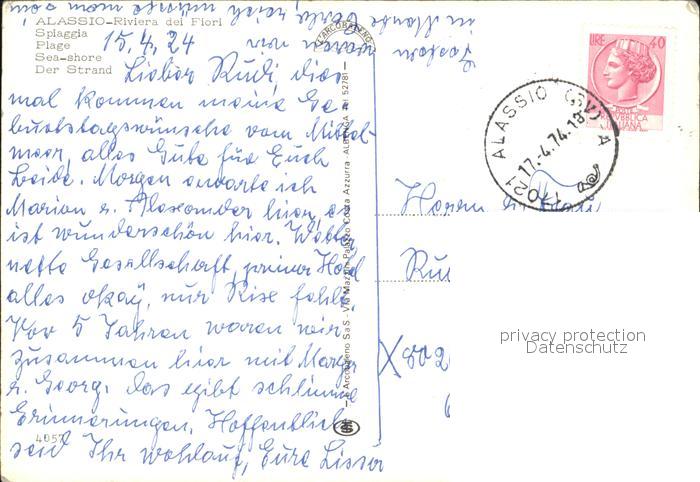 ALASSIO-Riviera dei Fiori
Spiaggia
Plage
Sea-shore
Der Strand
15.4.24
Lieber Rudi, dies
mal kommen meine Ge
burtstagswünsche vom Mittel-
meer, alles Gute für Euch
beide. Morgen erwarte ich
Marion u. Alexander hier, es
ist wunderschön hier. Wetter,
nette Gesellschaft, prima Hotel
alles okay, nur Rise fehlt.
Vor 5 Jahren waren wir
zusammen hier mit Marga
u. Georg, das gibt schlimme
Erinnerungen. Hoffentlich
seid Ihr wohlauf, Eure
4057
Arcobaleno SaS - Via Mazzini Palazzo Costa Azzurra ALBENGA Tel 52781
LIRE 40
POSTE
REPUBBLICA
ITALIANA
17021 ALASSIO (SV) A
17.-4.74.18
Herrn
Ru
X802
privacy protection
Datenschutz